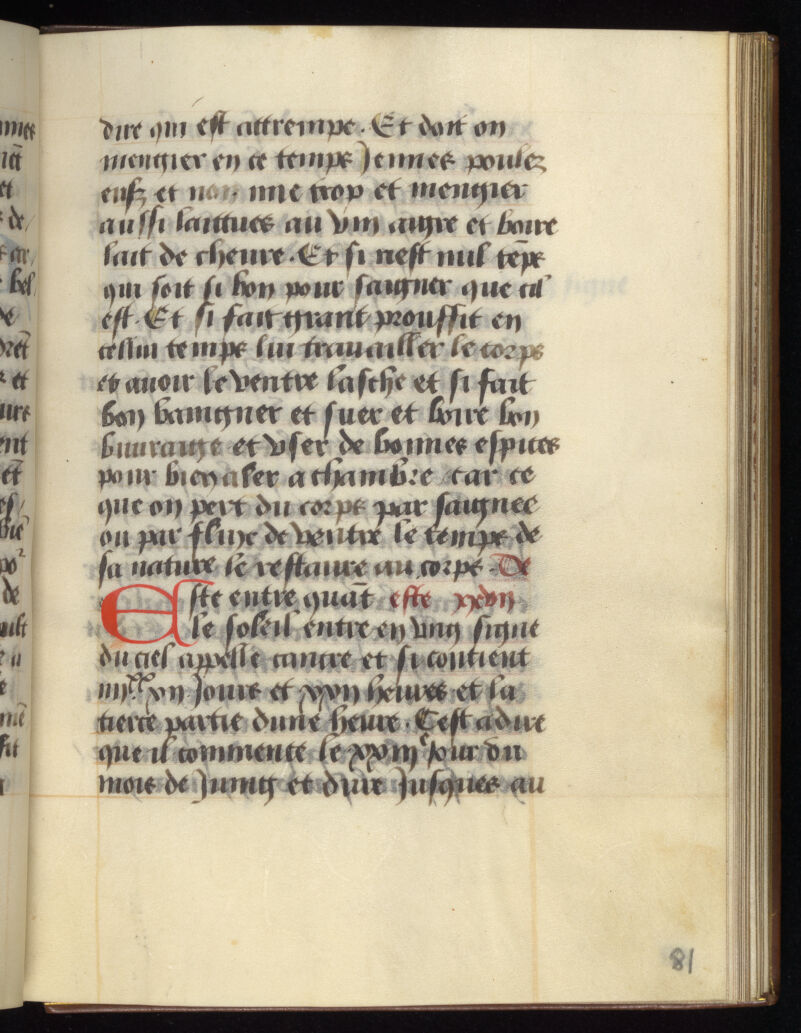 dire qui est attrempe. Et doit on
mengier en ce temps Jennes poulez
eufz et non mie trop et mengier
aussi laittues au vin aigre et boire
lait de chevre. Et si nest nul tēps
qui soit si bon pour saigner que cil
est. Et si fait grant prouffit en
cellui temps lui travailler le corps
et avoir le ventre lasche et si fait
bon baingner et suer et boire bon
buvraige et user de bonnes espices
pour bien aler a chambre car ce
que on pert du corps par saignee
ou par fluxe de ventre le temps de
sa nature le restaure au corps. De
Este entre quāt este xxvii.
le soleil entre en ung signe
du ciel appelle cancre et si contient
iiiixx xii Jours et xxii heures et la
tierce partie dune heure. Cest adire
que il commence le xxiiie Jour du
mois de Juing et dure Jusques au
81